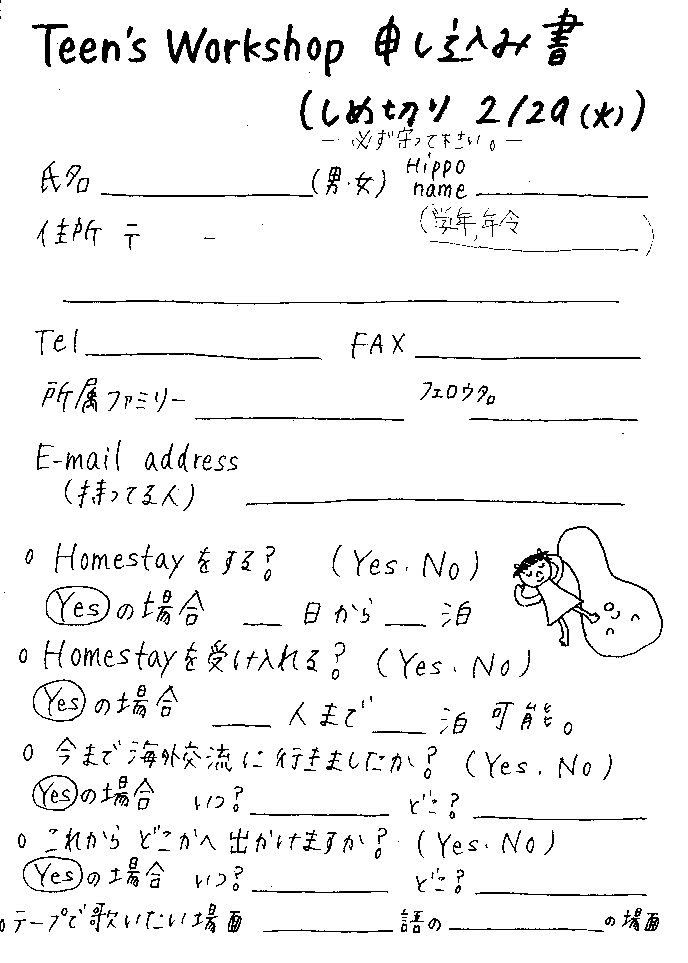 Teen's Workshop 申し込み書
(しめ切り 2/29(火))
— 必ず守って下さい。—
氏名 ____ (男・女) Hippo name ____
住所 〒 - (学年,年令 )
Tel ____ FAX ____
所属ファミリー ____ フェロウ名 ____
E-mail address ____
(持ってる人)
o Homestayをする? (Yes・No)
Yesの場合 __ 日から __ 泊
o Homestayを受け入れる? (Yes・No)
Yesの場合 __ 人まで __ 泊 可能。
o 今まで海外交流に行きましたか? (Yes・No)
Yesの場合 いつ? ____ どこ? ____
o これからどこかへ出かけますか? (Yes・No)
Yesの場合 いつ? ____ どこ? ____
o テープで歌いたい場面 ____ 語の ____ の場面